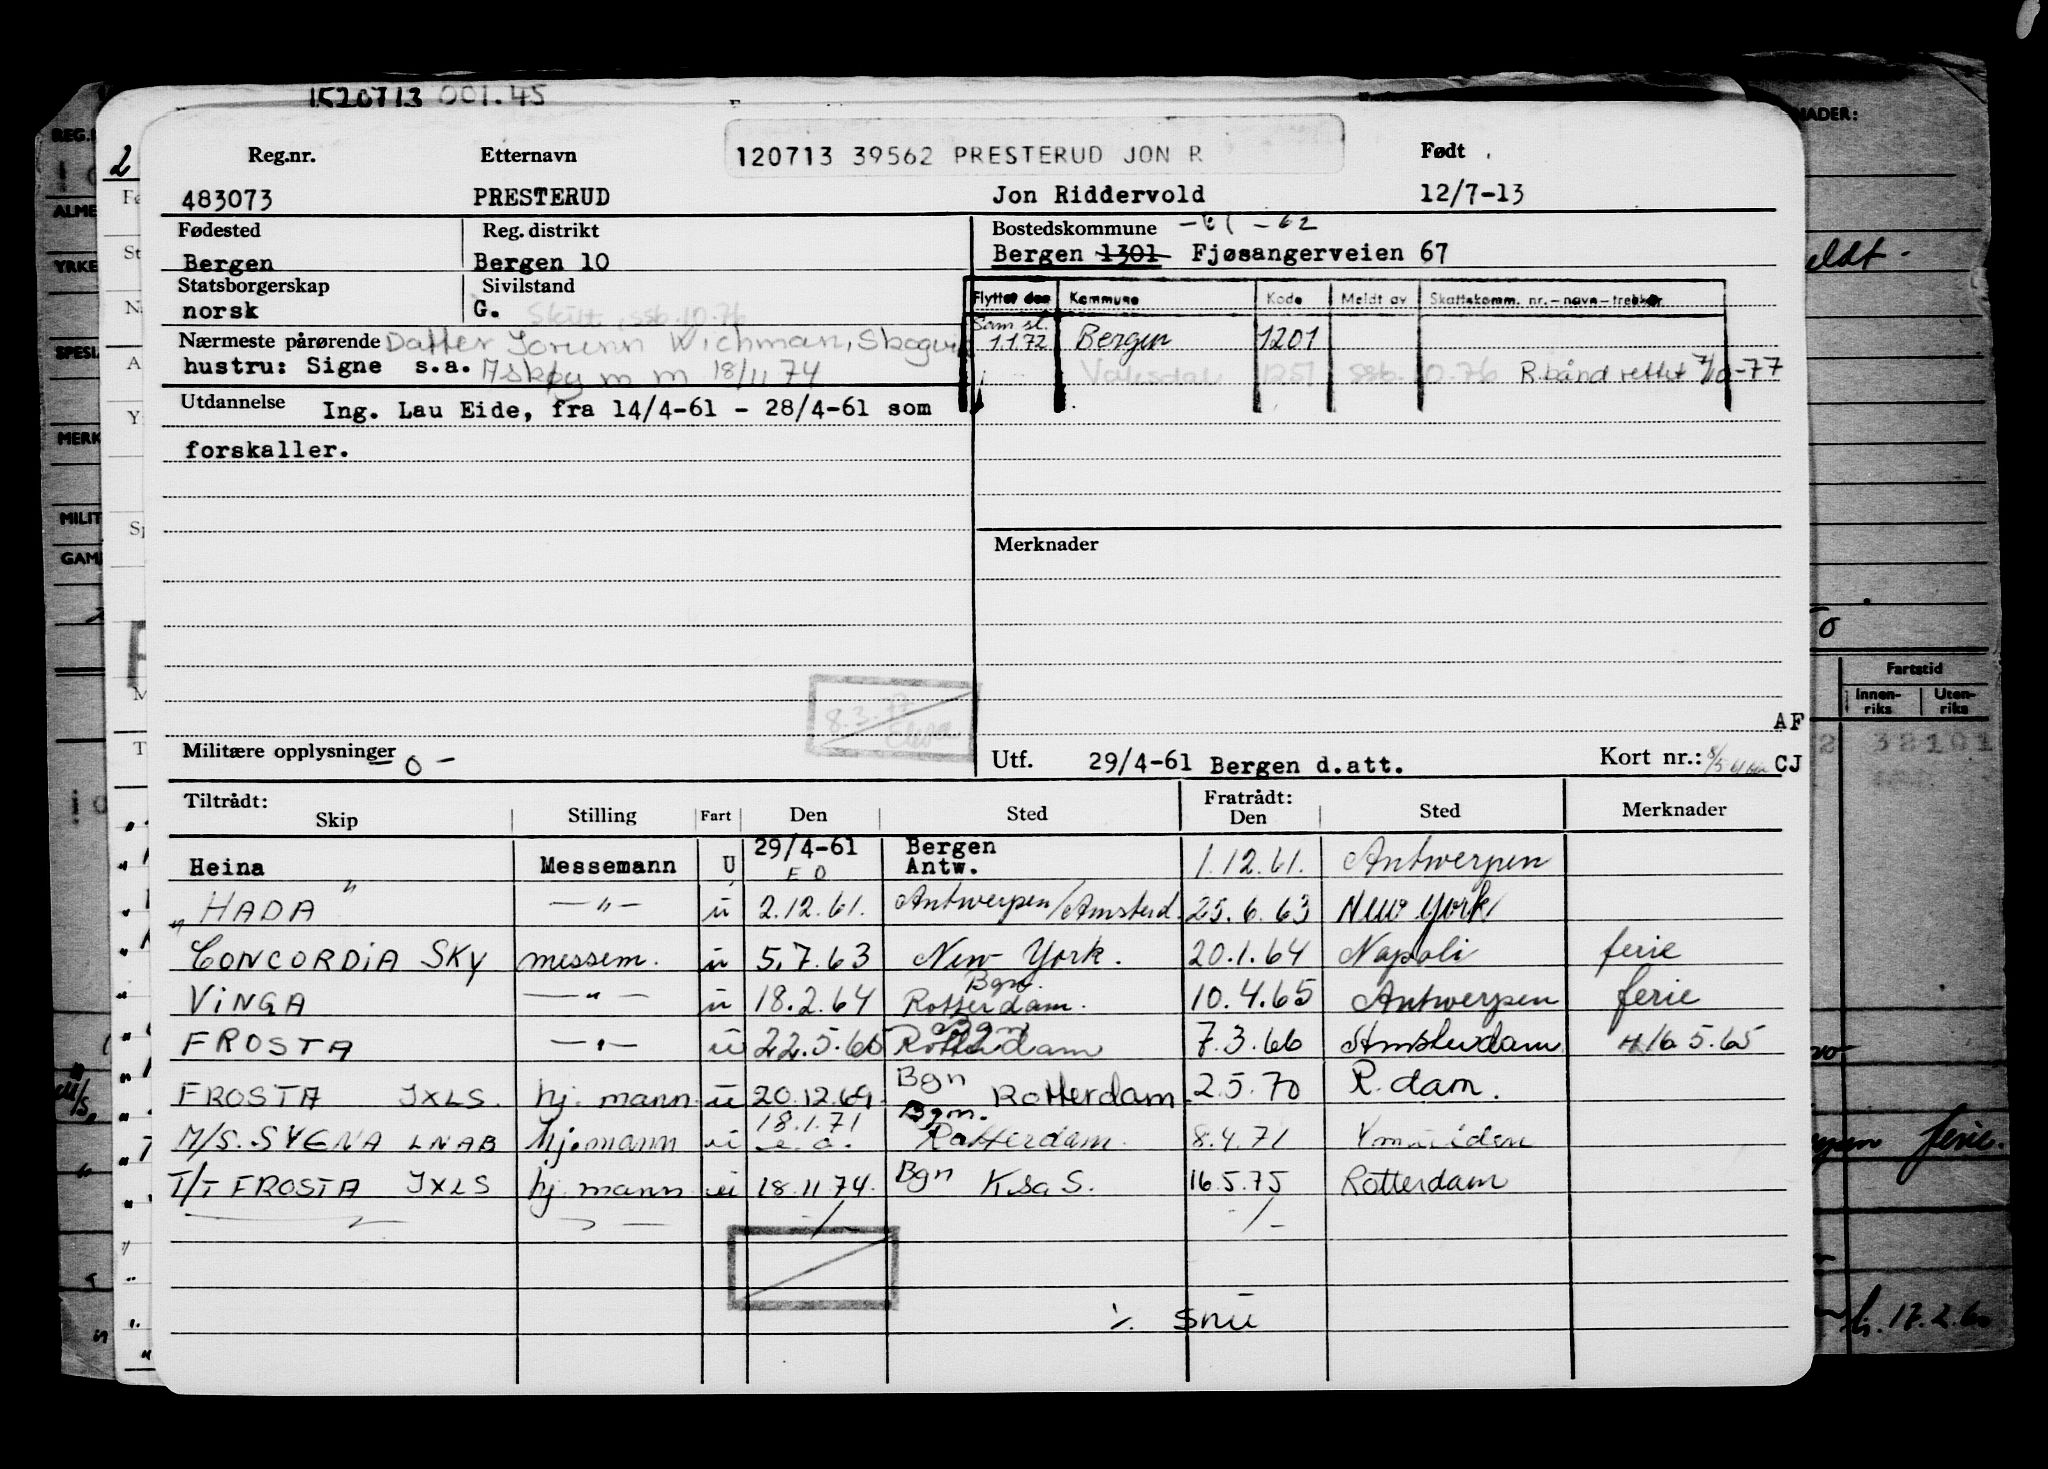 1520713 001.45
2
Reg.nr. Etternavn 120713 39562 PRESTERUD JON R Født
483073 PRESTERUD Jon Riddervold 12/7-13
Fødested Reg. distrikt Bostedskommune
Bergen Bergen 10 Bergen 1301 Fjøsangerveien 67
Statsborgerskap Sivilstand
norsk G. Skilt ssb. 10.76
Flyttet den Kommune Kode Meldt av Skattekomm. nr. – navn – trekkpr.
Nærmeste pårørende Datter Jorunn Wichman,
Sam. st. 1.1.72 Bergen 1201
hustru: Signe s.a. Askøy m m 18/11 74
1251 ssb. 10.76 R.bånd rettet 7/10-77
Utdannelse Ing. Lau Eide, fra 14/4-61 - 28/4-61 som
forskaller.
Merknader
8.3.77
AF
Militære opplysninger - 0 -
Utf. 29/4-61 Bergen d.att. Kort nr.: CJ
Tiltrådt: Skip Stilling Fart Den Sted Fratrådt: Den Sted Merknader
Heina Messemann U 29/4-61 F O Bergen Antw. 1.12.61. Antwerpen
" HADA " —"— u 2.12.61. Antwerpen/Amsterd. 25.6.63 New York
CONCORDIA SKY messem. u 5.7.63 New York. 20.1.64 Napoli ferie
VINGA —"— u 18.2.64 Bgn. Rotterdam. 10.4.65 Antwerpen ferie
FROSTA —"— u 22.5.65 Bgn Rotterdam 7.3.66 Amsterdam 16 5.65
FROSTA JXLS. hj. mann u 20.12.69. Bgn Rotterdam 2.5.70 R.dam.
M/S. SVENA LNAB hjemann u 18.1.71 e.o. Bgn. Rotterdam. 8.4.71
T/T FROSTA JXLS hj. mann u 18.11 74. Bgn K.sa S. 16.5.75 Rotterdam
./. snu
NADER:
Fartstid
Innen-riks Uten-riks
32101
ferie.
17.2.6